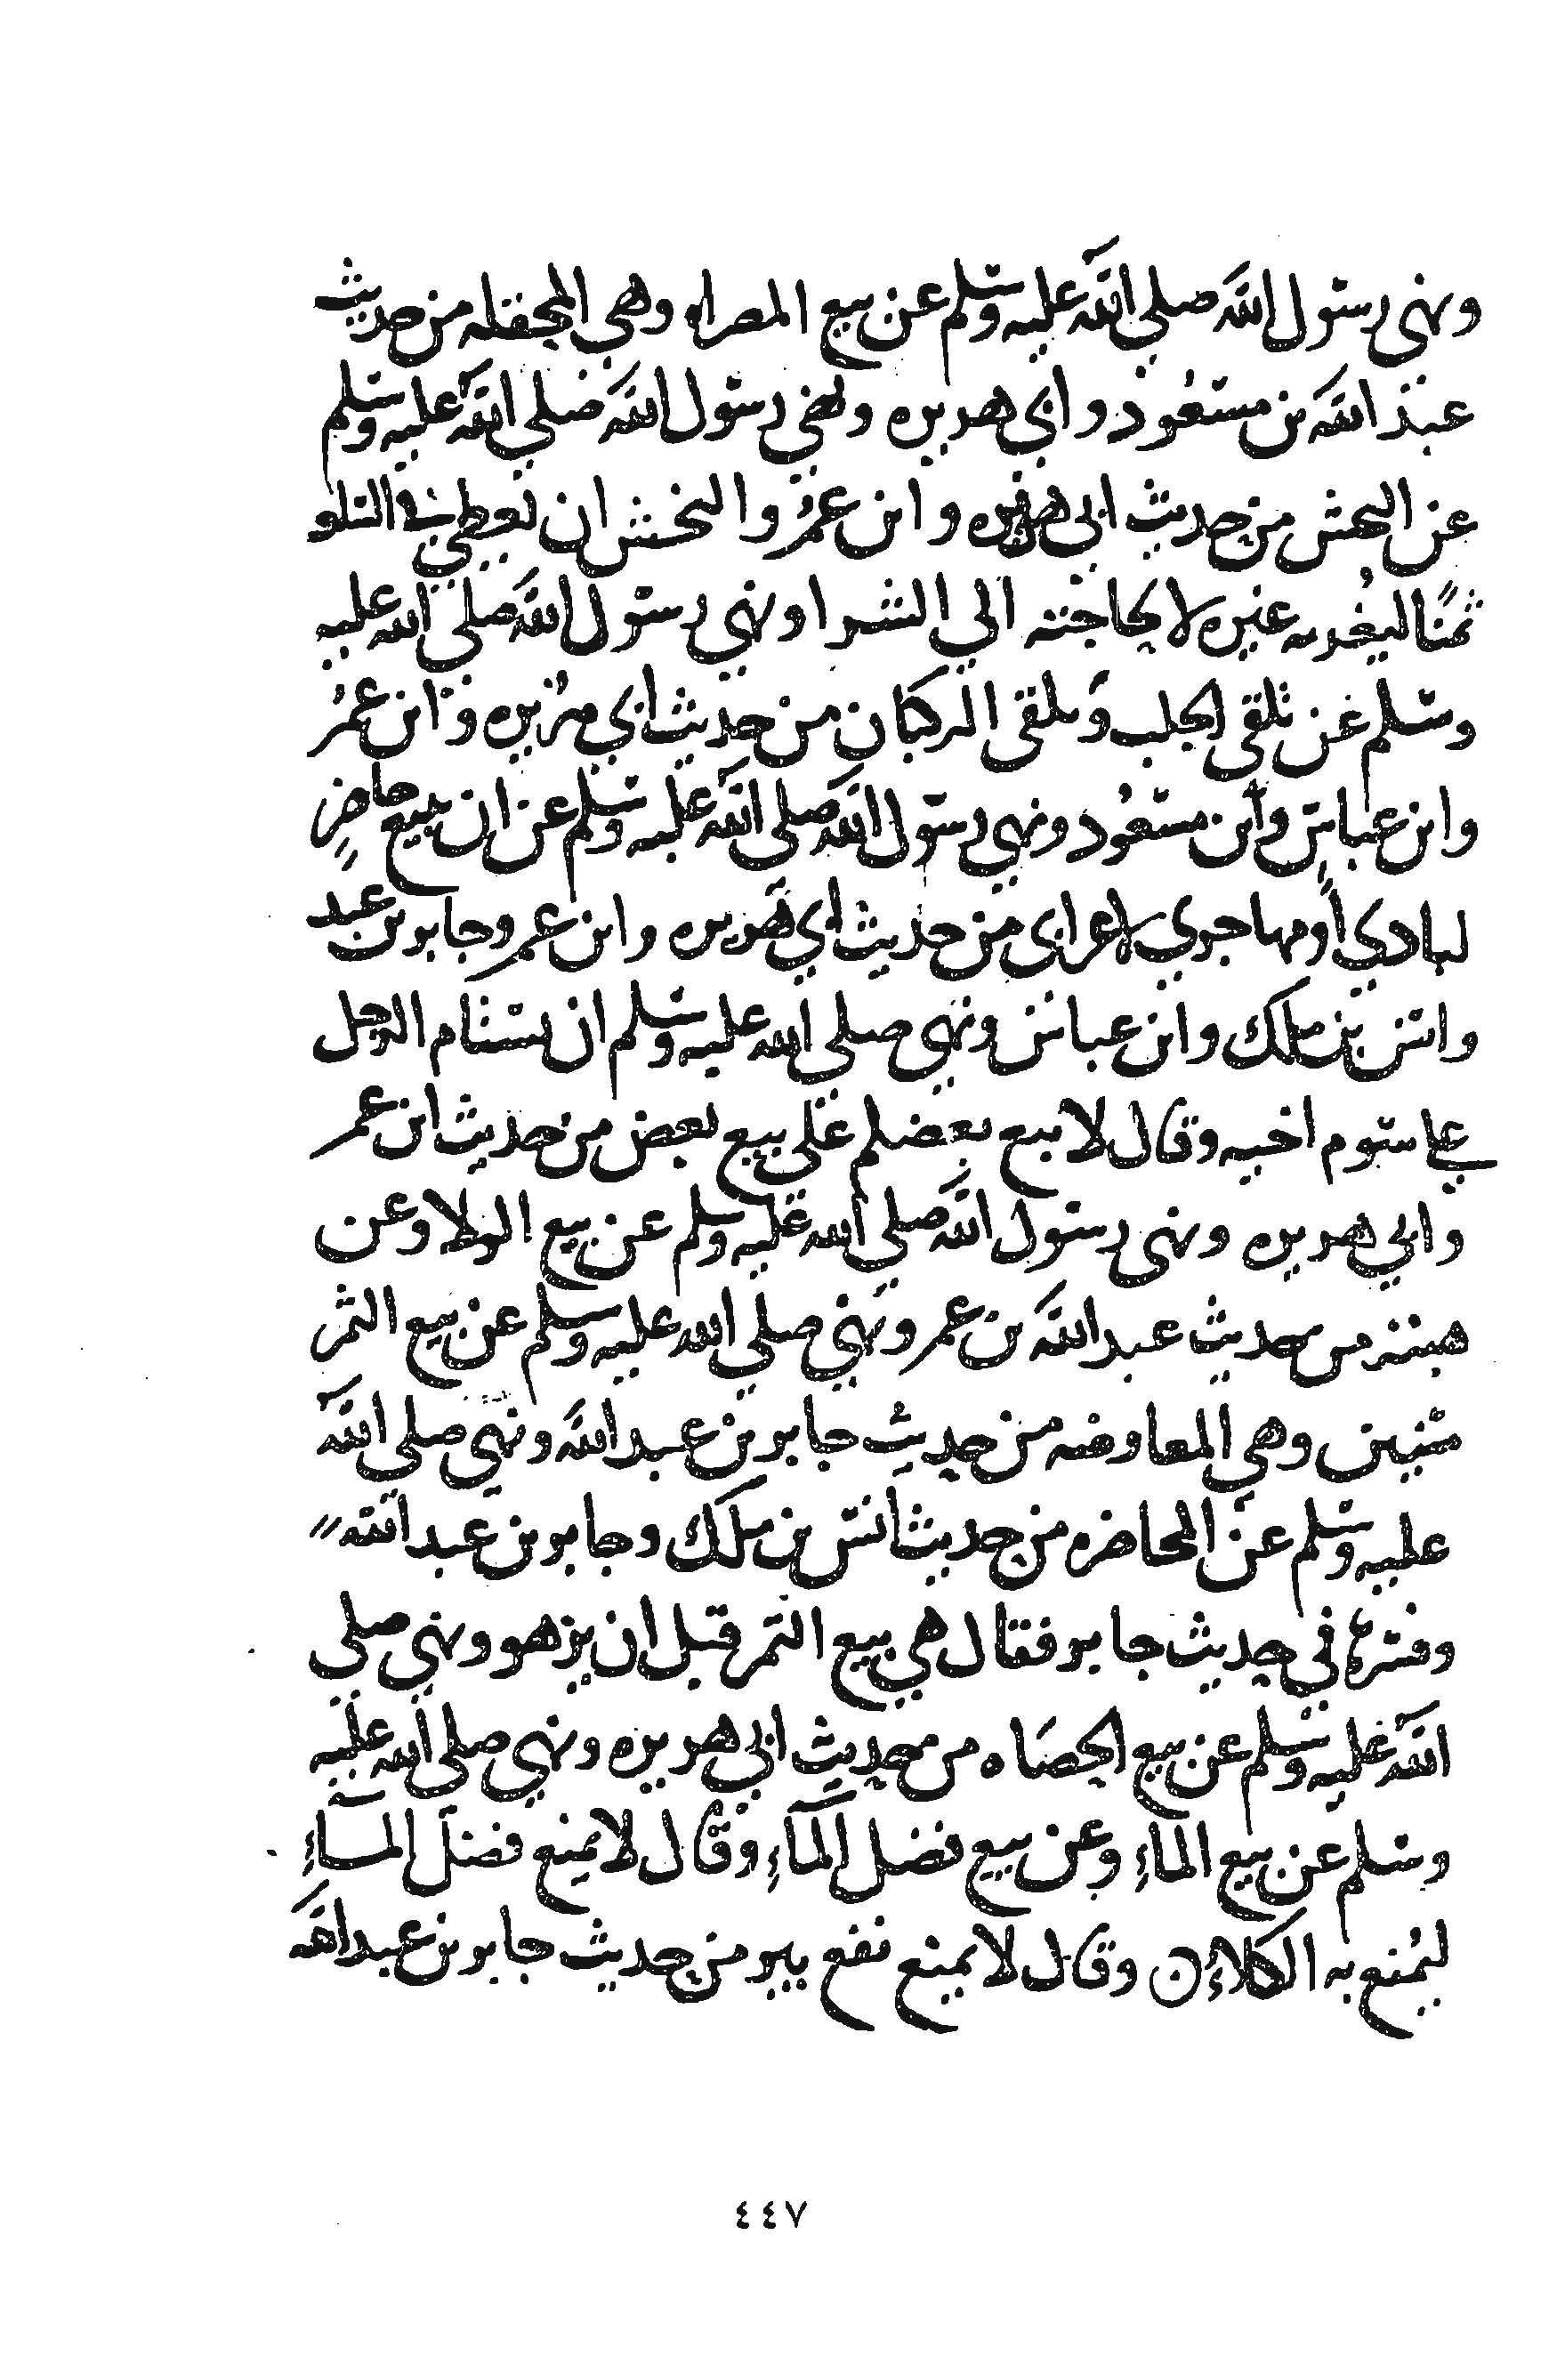 ونهى رسول الله صلي الله عليه وسلم عن بيع المصراه وهي المحفله من حديث
عبد الله بن مسعود وابي هريره ونهي رسول الله صلي الله عليه وسلم
عن النجش من حديث ابي هريره وابن عمر والنجش ان تعطي في السلعه
ثمنًا ليغر به غيره لا لحاجته الي الشرا ونهي رسول الله صلي الله عليه
وسلم عن تلقي الجلب وتلقي الركبان من حديث ابي هريره وابن عمر
وابن عباس وابن مسعود ونهي رسول الله صلي الله عليه وسلم عن ان يبيع حاضرٍ
لبادي أو مهاجري لاعرابي من حديث ابي هريره وابن عمر وجابر بن عبد
وانس بن ملك وابن عباس ونهي صلي الله عليه وسلم ان يستام الرجل
علي سوم اخيه وقال لا يبع بعضكم علي بيع بعض من حديث ابن عمر
وابي هريره ونهى رسول الله صلي الله عليه وسلم عن بيع الولا وعن
هبته من حديث عبد الله بن عمر ونهي صلي الله عليه وسلم عن بيع الثمر
سنين وهي المعاومه من حديث جابر بن عبد الله ونهي صلي الله
عليه وسلم عن المخاضره من حديث انس بن ملك وجابر بن عبد الله
وفسرها في حديث جابر فقال هي بيع الثمر قبل ان يزهو ونهي صلي
الله عليه وسلم عن بيع الحصاه من حديث ابي هريره ونهي صلي الله عليه
وسلم عن بيع المآءِ وعن بيع فضل المآءِ وقال لا يمنع فضل المآءِ
ليمنع به الكلاءن وقال لا يمنع نفع بير من حديث جابر بن عبد الله
٤٤٧